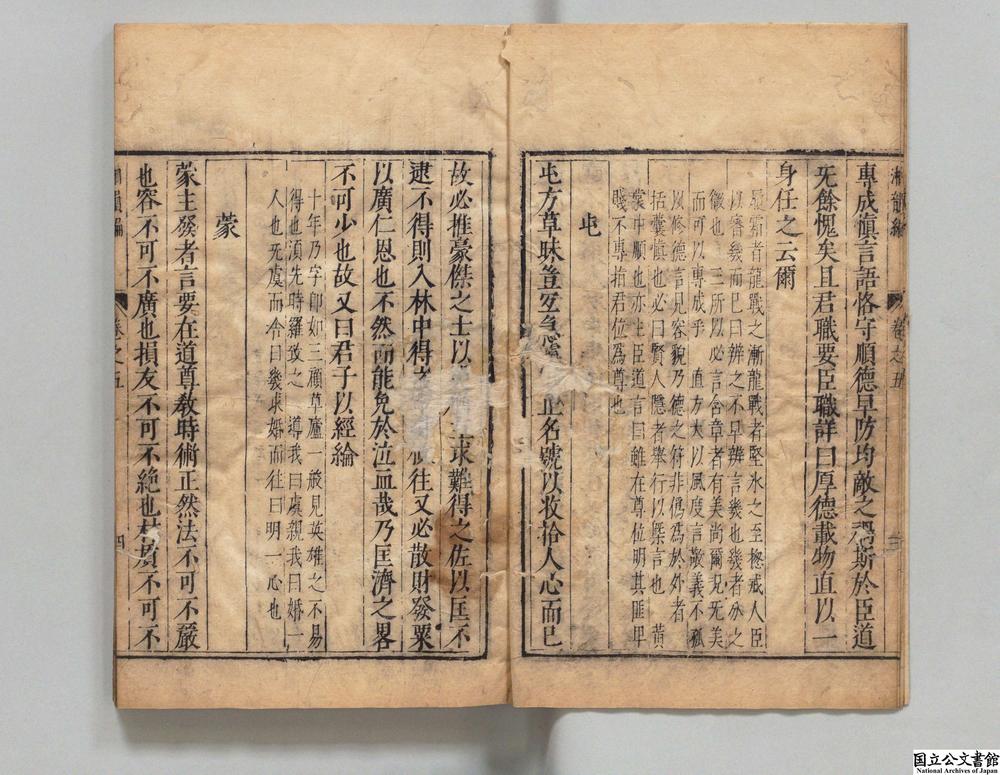 專成旗言語恪守順德早防均敵之禍斯於臣道
旡餘愧矣且君職要臣職詳曰厚德載物直以一
身任之云爾
履霜者龍戰之漸龍戰者堅氷之至㧾戒人臣
以審幾而已曰辨之不早辨言幾也幾者㣲之
三所以必言含章者有美尚爾况无美
而可以專成乎 直方大以風度言敬義不孤
以修德言見容貌乃德之符非僞爲於外者
括囊慎也必曰賢人隱者舉行以槩言也 黄
裳中順也亦主臣道也言曰雖在尊位明其匪甲
賤不專指君位爲尊也
屯
屯方草昧豈
正名號以收拾人心而巳
故必推豪傑之士以
求難得之佐以匡不
逮不得則入林中得之
往又必散財發粟
以廣仁恩也不然而能免於泣血哉乃匡濟之畧
不可少也故又曰君子以經綸
十年乃字卽如三顧草廬一般見英雄之不易
得也湏先時羅致之 導我曰虞親我曰婚一
人也旡虞而今日幾求婚而往曰明一心也
蒙
蒙主發者言要在道尊教時術正然法不可不嚴
也容不可不廣也損友不可不絶也
不可不
卷之五
四
国立公文書館
National Archives of Japan